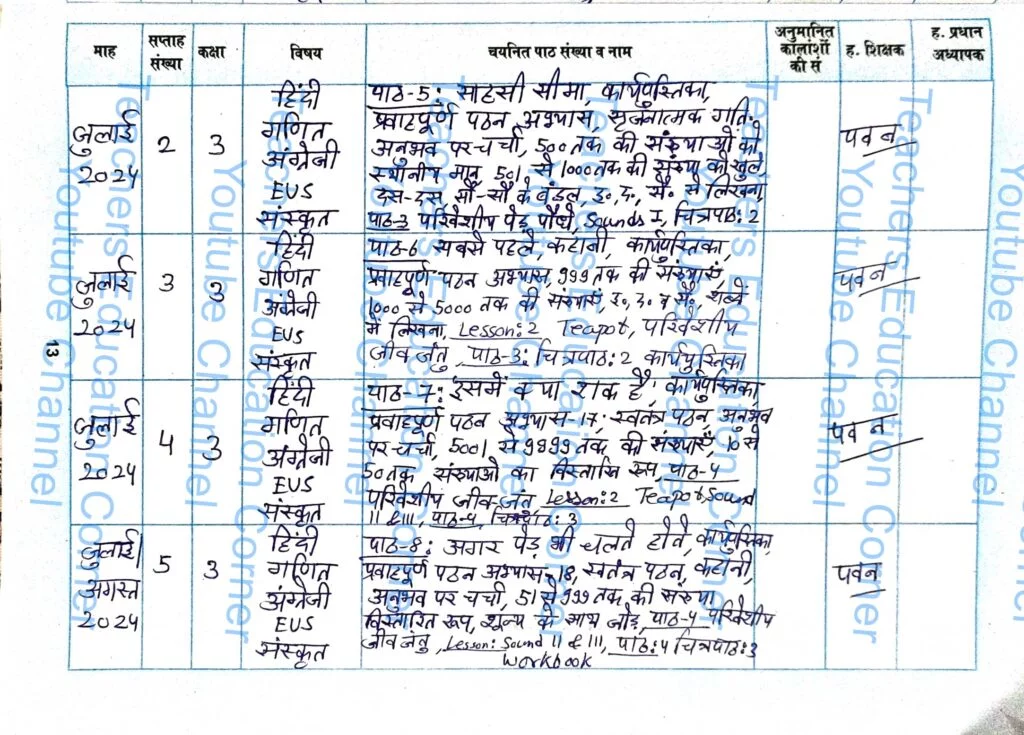 माह सप्ताह संख्या कक्षा विषय चयनित पाठ संख्या व नाम अनुमानित कालांशों की सं ह. शिक्षक ह. प्रधान अध्यापक
जुलाई 2024 2 3 पवन
हिंदी
गणित
अंग्रेजी
EUS
संस्कृत
पाठ-5: साहसी सीमा, कार्यपुस्तिका,
प्रवाहपूर्ण पठन अभ्यास, सृजनात्मक गति.
अनुभव पर चर्चा, 500 तक की संख्याओं को
स्थानीय मान, 501 से 1000 तक की संख्या को खुले
दस-दस, सौ-सौ के बंडल, इ०, द०, सै० से लिखना,
पाठ-3 परिवेशीय पेड़ पौधे, Sounds I, चित्रपाठ: 2
जुलाई 2024 3 3 पवन
हिंदी
गणित
अंग्रेजी
EUS
संस्कृत
पाठ-6 सबसे पहले, कहानी, कार्यपुस्तिका,
प्रवाहपूर्ण पठन अभ्यास, 999 तक की संख्याएं,
1000 से 5000 तक की संख्याएं, इ०, द० व सै०, शब्दों
में लिखना, Lesson: 2 Teapot, परिवेशीय
जीव जंतु, पाठ-3: चित्रपाठ: 2 कार्यपुस्तिका
13
जुलाई 2024 4 3 पवन
हिंदी
गणित
अंग्रेजी
EUS
संस्कृत
पाठ-7: इसमें क्या शक है, कार्यपुस्तिका,
प्रवाहपूर्ण पठन अभ्यास-17, स्वतंत्र पठन, अनुभव
पर चर्चा, 5001 से 9999 तक की संख्याएं, 10 से
50 तक संख्याओं का विस्तारित रूप, पाठ-4
परिवेशीय जीव-जंतु Lesson: 2 Teapot, Sound
II & III, पाठ-4, चित्रपाठ: 3
जुलाई/ अगस्त 2024 5 3 पवन
हिंदी
गणित
अंग्रेजी
EUS
संस्कृत
पाठ-8: अगर पेड़ भी चलते होते, कार्यपुस्तिका
प्रवाहपूर्ण पठन अभ्यास-18, स्वतंत्र पठन, कहानी,
अनुभव पर चर्चा, 51 से 999 तक की संख्या
विस्तारित रूप, शून्य के साथ जोड़, पाठ-4 परिवेशीय
जीव जंतु, Lesson: Sound II & III, पाठ: 4 चित्रपाठ: 3
Workbook
Teachers Education Corner
Youtube Channel
Teachers Education Corner
Youtube Channel
Teachers Education Corner
Youtube Channel
Teachers Education Corner
Youtube Channel
Youtube Channel